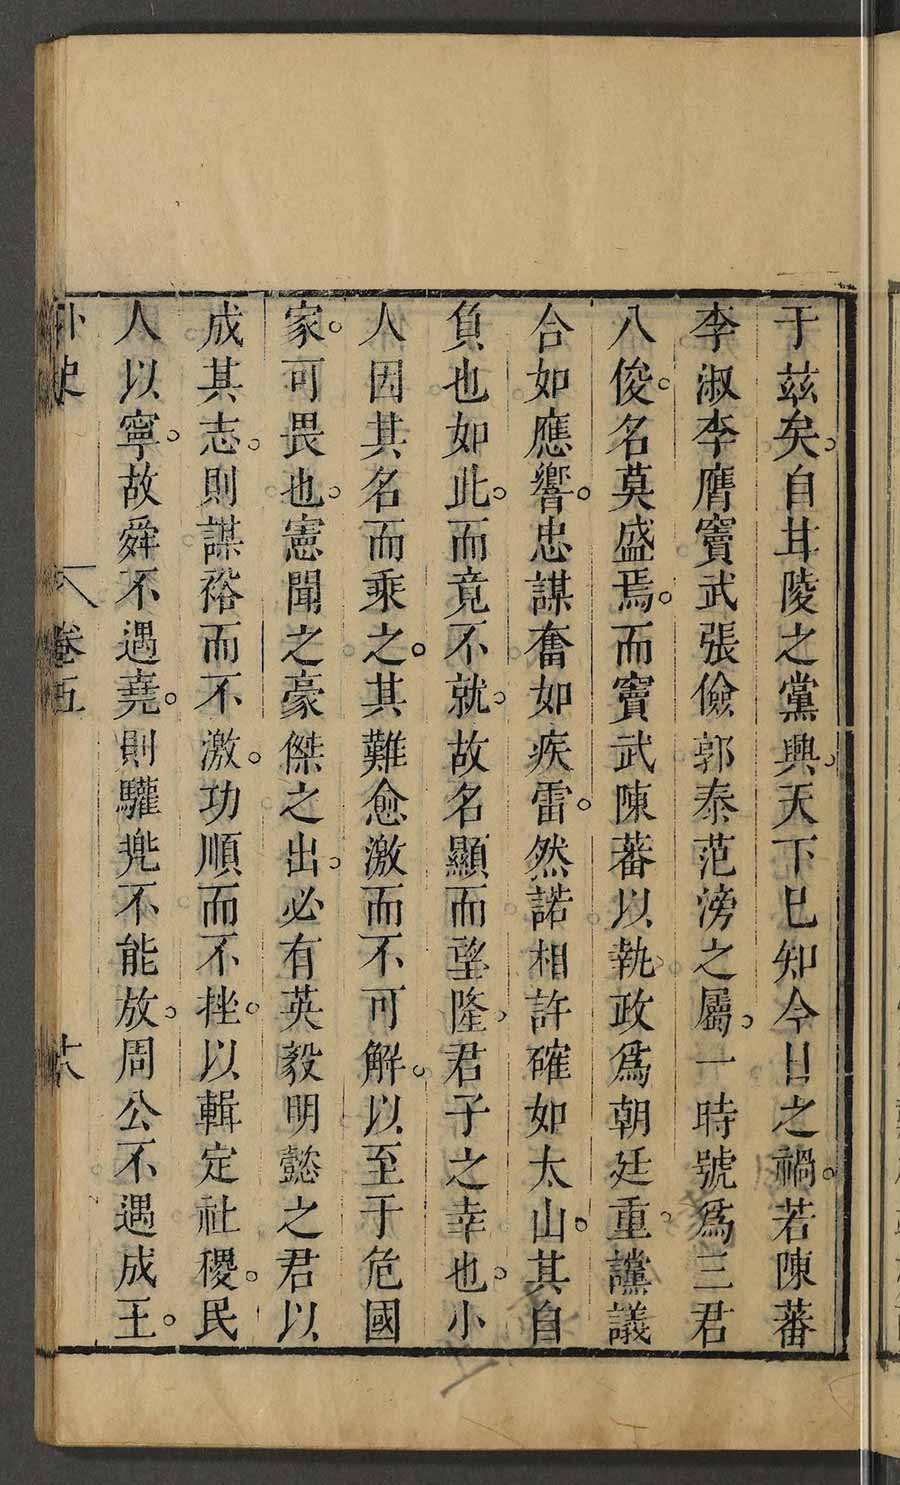 于茲矣。自甘陵之黨興。天下巳知今日之禍。若陳蕃
李淑李膺竇武張儉郭泰范滂之屬。一時號爲三君
八俊。名莫盛焉。而竇武陳蕃以執政爲朝廷重。讜議
合如應響。忠謀奮如疾雷。然諾相許確如太山。其自
負也如此。而竟不就。故名顯而望隆。君子之幸也。小
人因其名而乘之。其難愈激而不可解。以至于危國
家。可畏也。憲聞之豪傑之出。必有英毅明懿之君以
成其志。則謀裕而不激。功順而不挫。以輯定社稷。民
人以寧。故舜不遇堯。則驩兠不能放。周公不遇成王。
外史
卷五